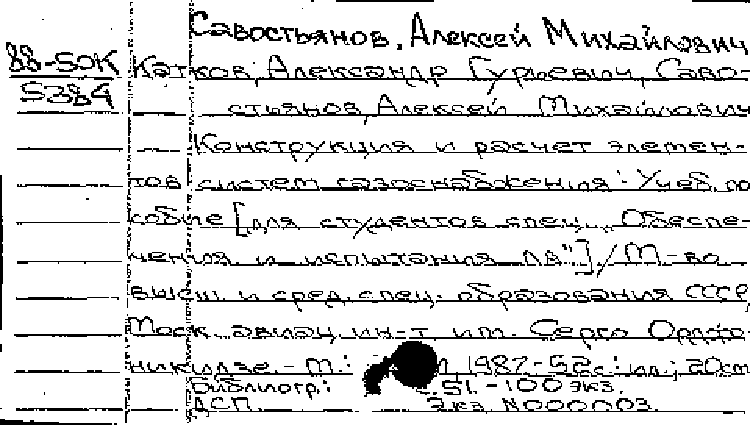 Савостьянов, Алексей Михайлович
88-50К Катков, Александр Гурьевич, Саво-
5384
стьянов, Алексей Михайлович
Конструкция и расчет элемен-
тов систем газоснабжения: Учеб. по
собие [для студентов спец. „Обеспе-
чения и испытания ЛА"] / М-во
высш. и сред. спец. образования СССР,
Моск. авиац. ин-т им. Серго Орджо
никидзе. - М.: 1987. - 52с.: ил.; 20см
Библиогр.: 51. - 100 экз.
ДСП. Экз. N000003.